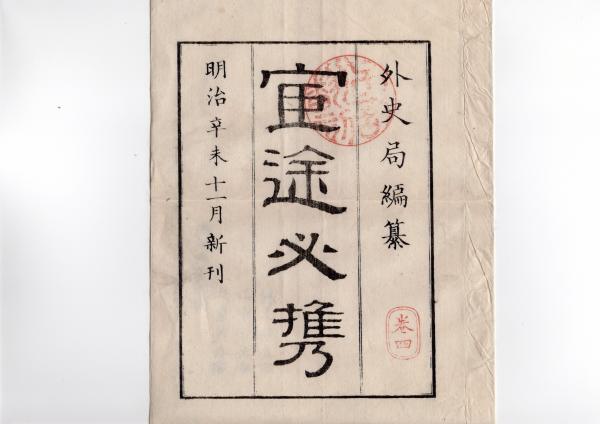 外史局編纂
巻四
宦途必携
明治辛未十一月新刊